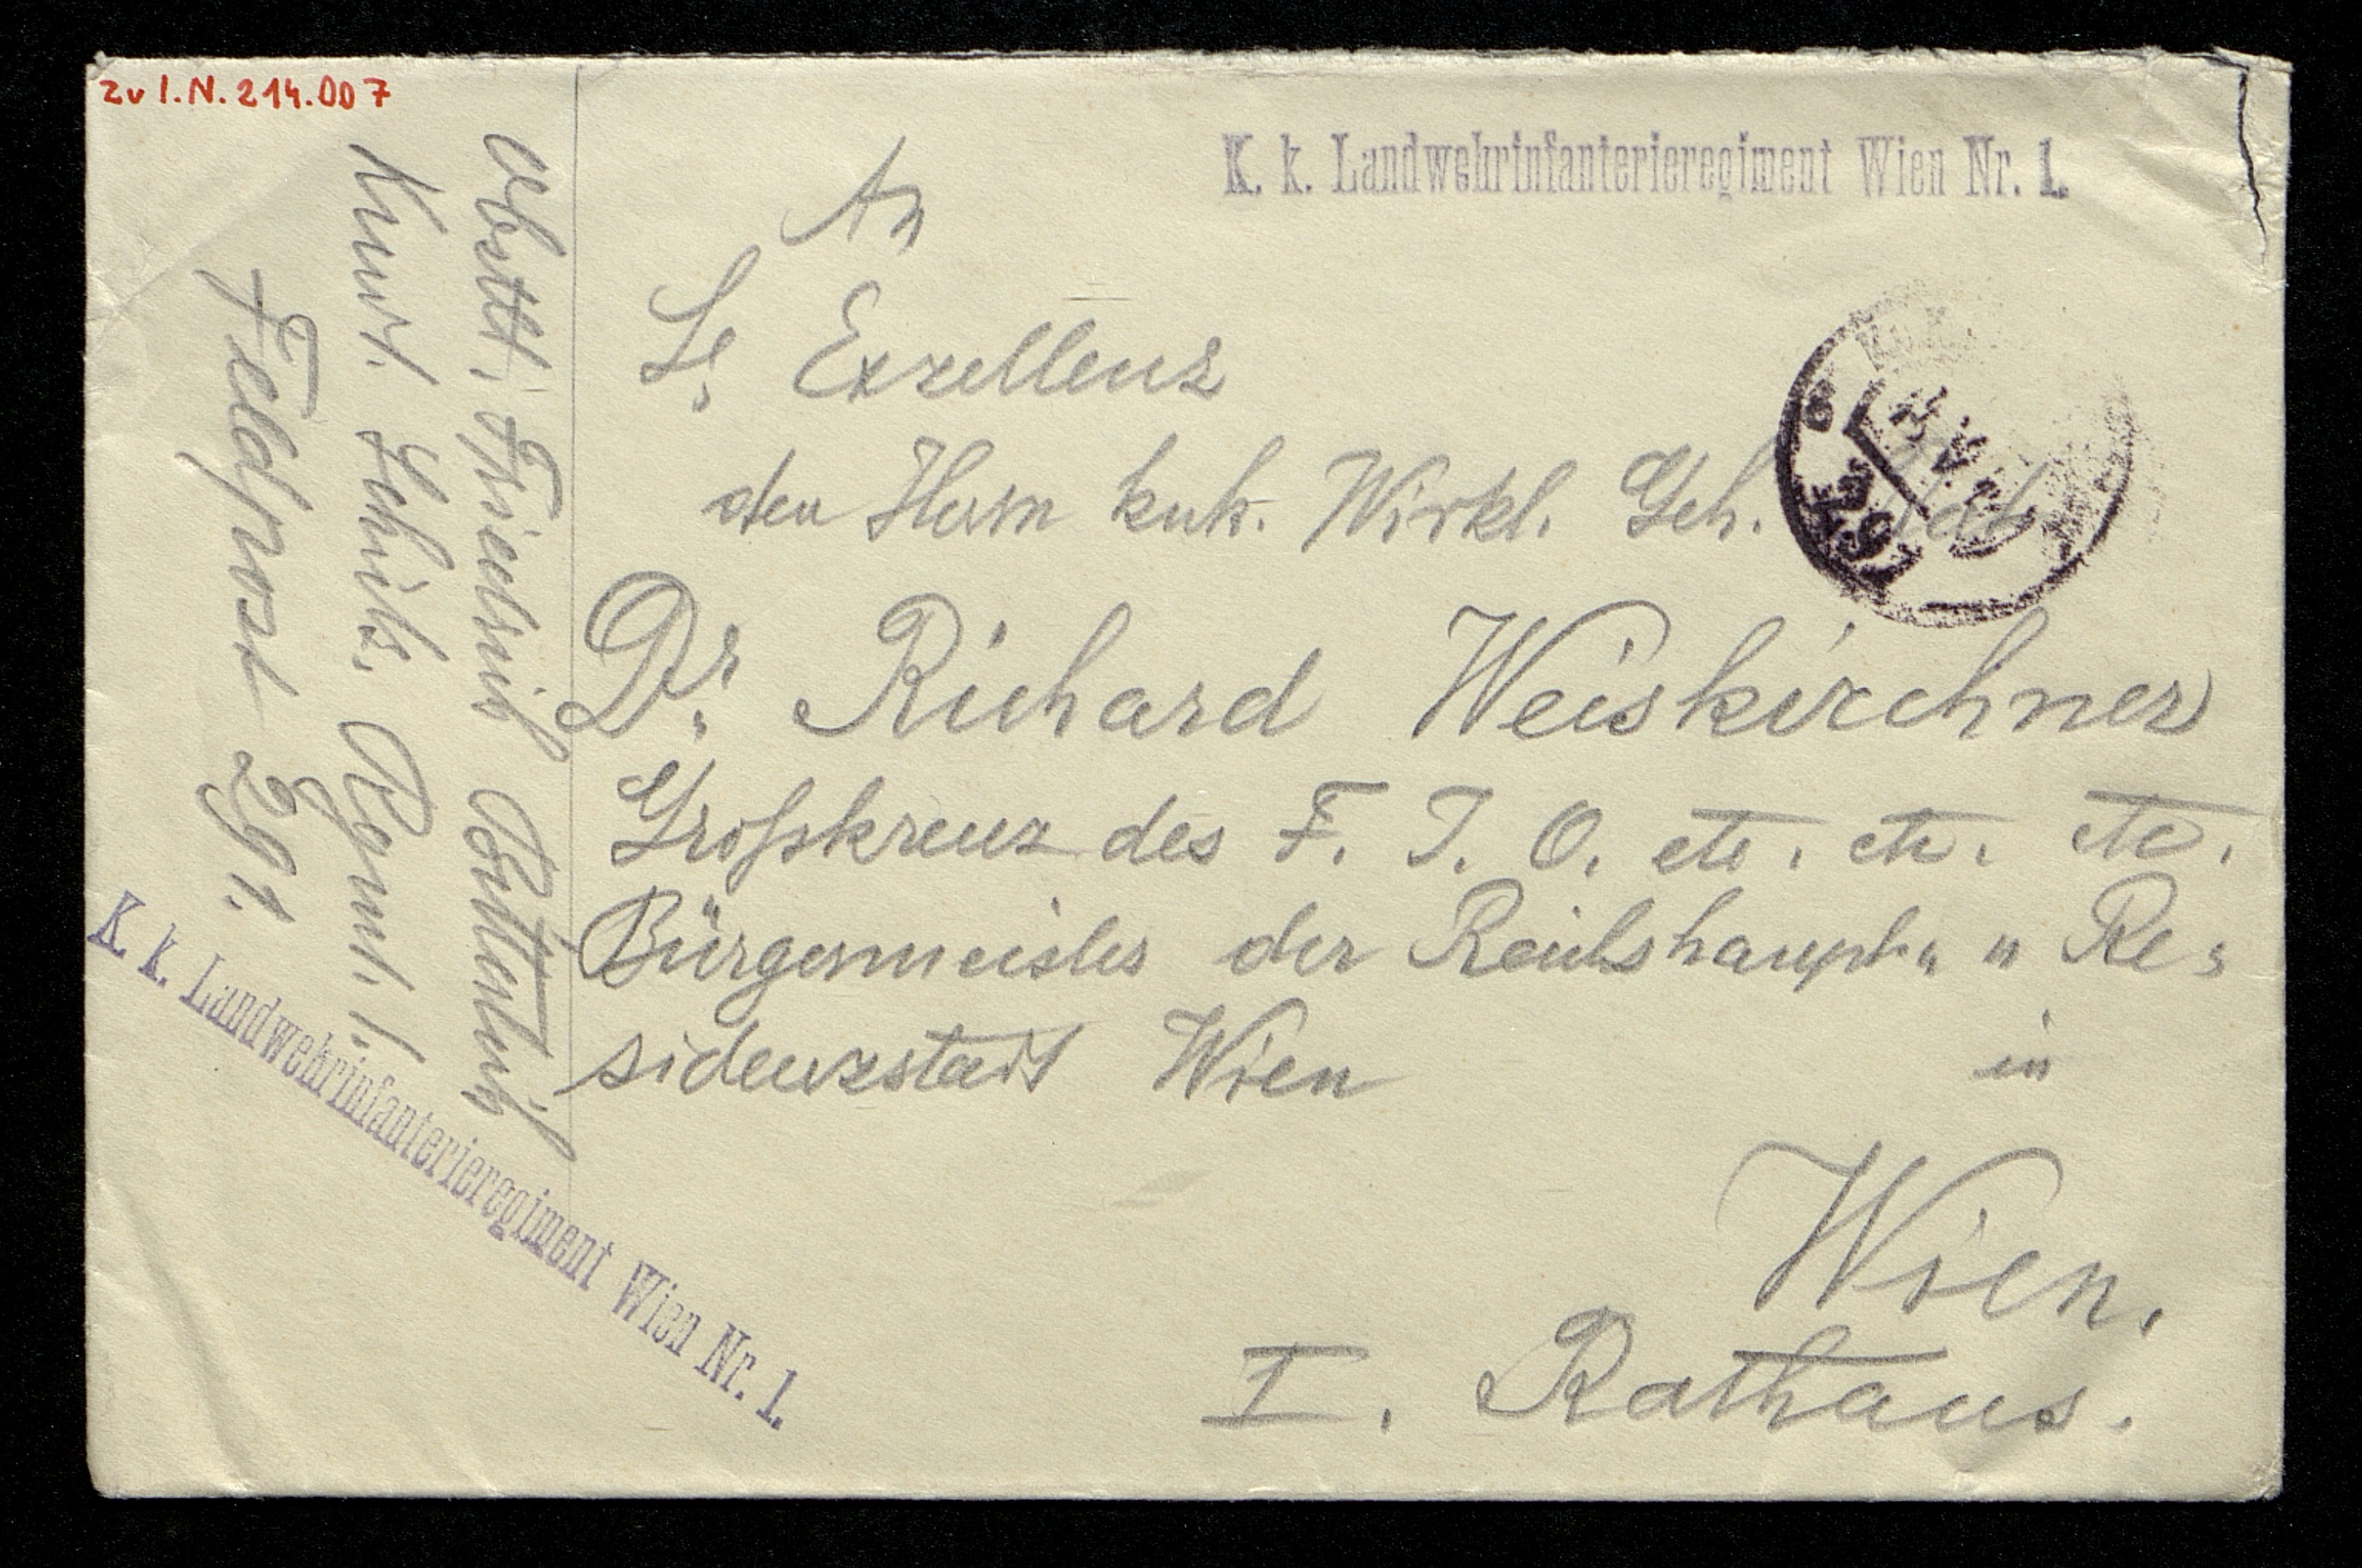 zu I.N. 214.007
K. k. Landwehrinfanterieregiment Wien Nr. 1.
An
Se Exzellenz
den Herrn kuk. Wirkl. Geh. Rat
Dr. Richard Weiskirchner
Großkreuz des F. J. O. etc. etc. etc.
Bürgermeister der Reichshaupt- u Re-
sidenzstadt Wien
in
Wien.
I. Rathaus.
Obstlt. Friedrich
Kmdt. Schütz. Rgmt. 1.
Feldpost 291.
K. k. Landwehrinfanterieregiment Wien Nr. 1.